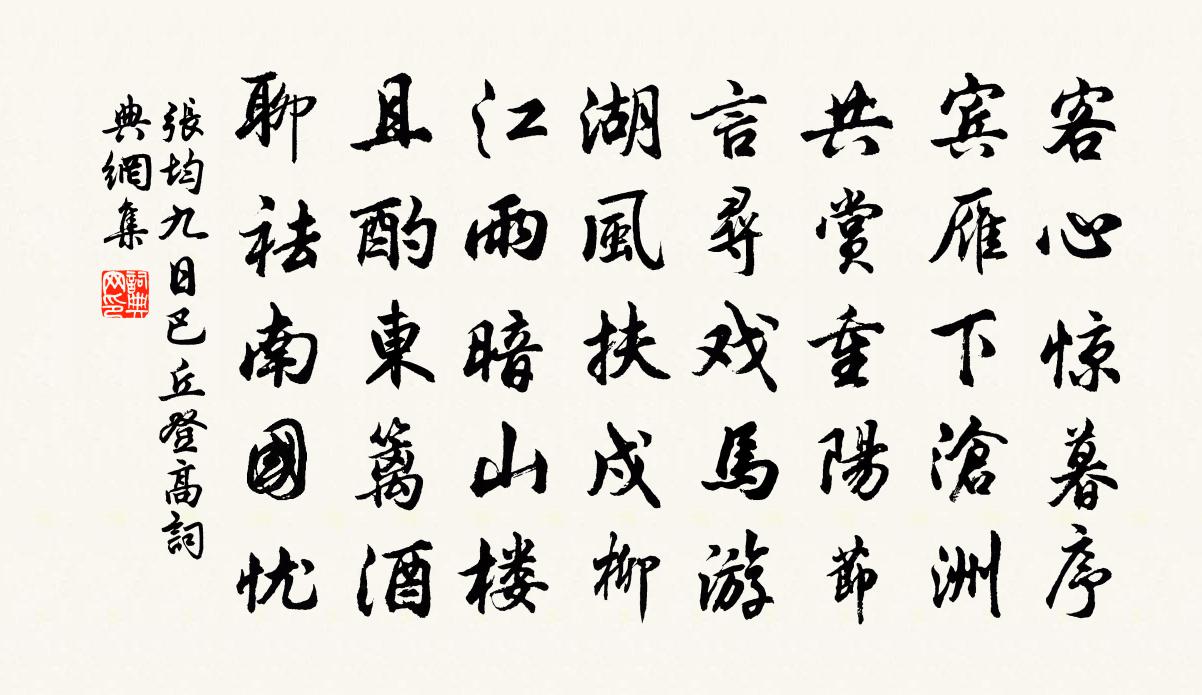 客心惊暮序
宾雁下滄洲
共赏重陽節
言尋戏馬游
湖風扶戍柳
江雨暗山楼
且酌東篱酒
聊祛南國忧
張均九日巴丘登高詞
典網集
詞典网印